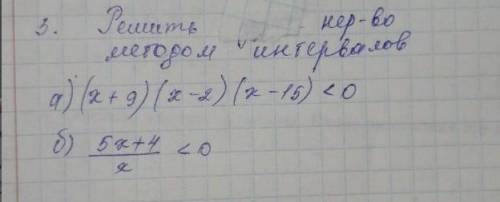 3. Решить нер-во
методом интервалов
а) (x+9)(x-2)(x-15)<0
б) \frac{5x+4}{x} <0